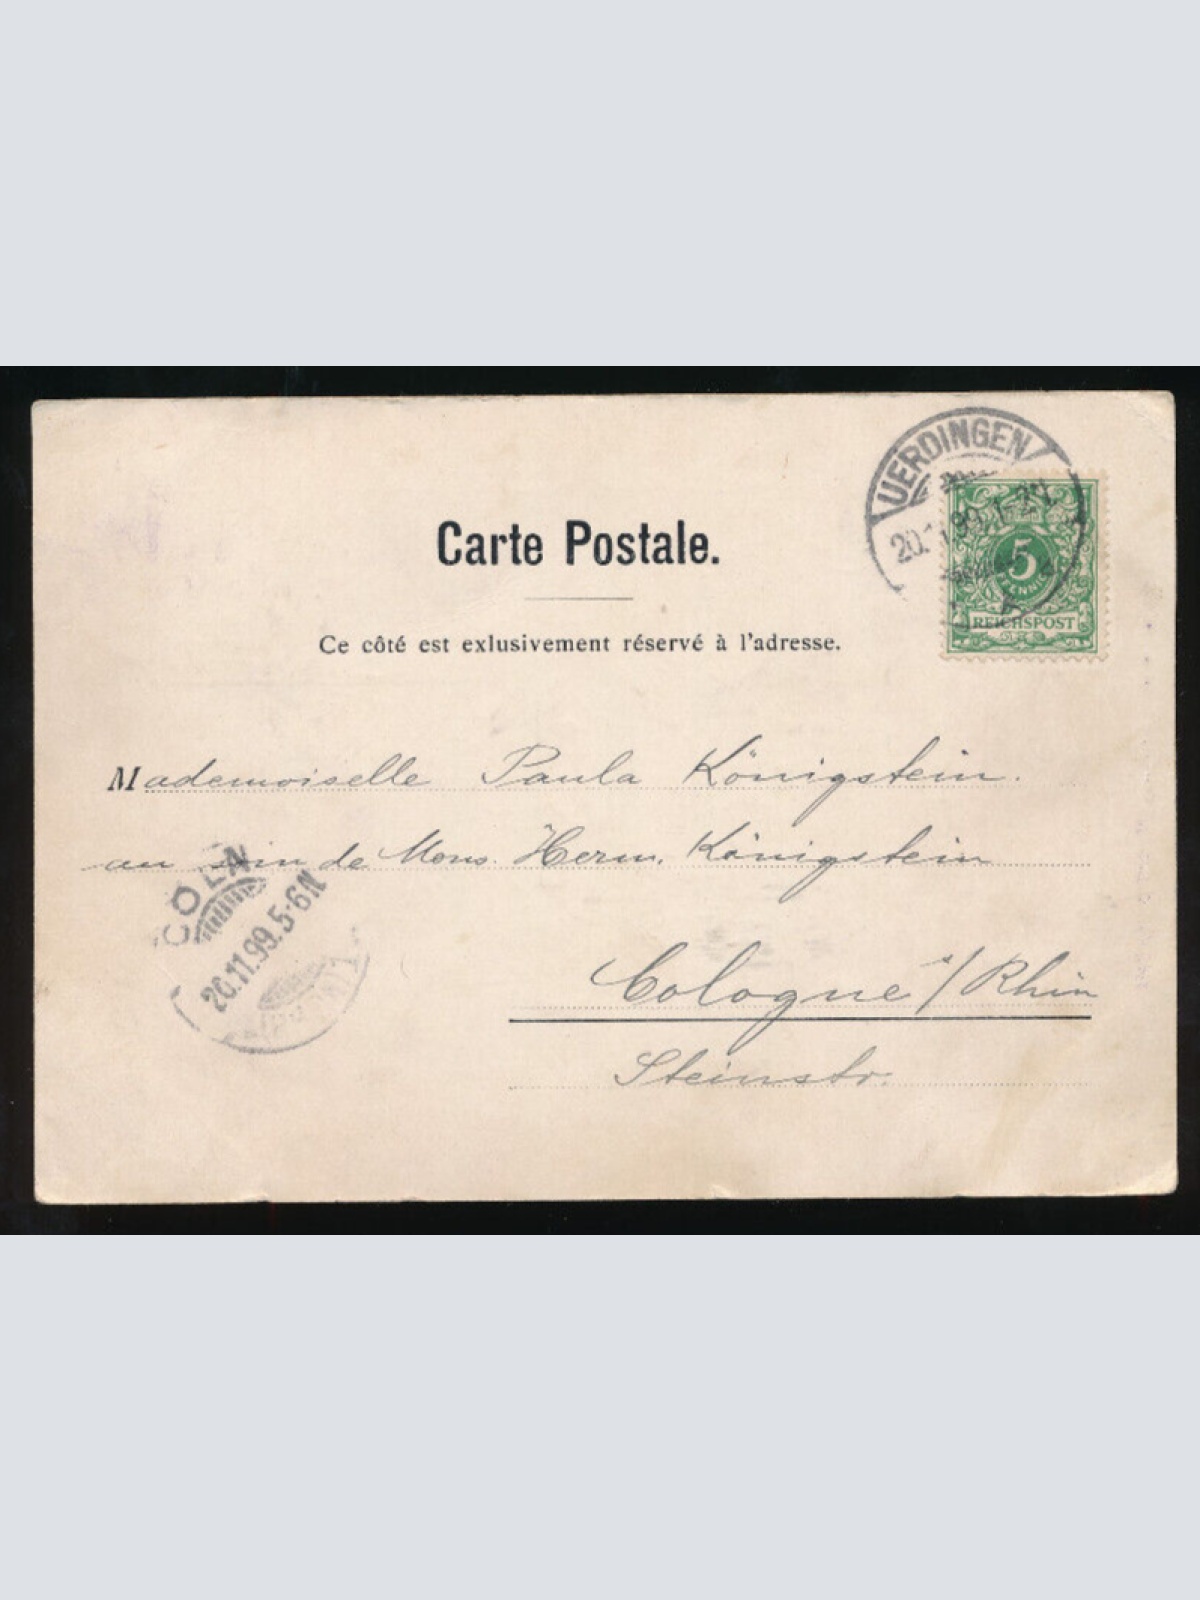 UERDINGEN
20.11.99.1-2N.
5
PFENNIG
REICHSPOST
Carte Postale.
Ce côté est exlusivement réservé à l'adresse.
Mademoiselle Paula Königstein.
au soin de Mons. Herm. Königstein
CÖLN
20.11.99.5-6N
Cologne s/Rhin
Steinstr.